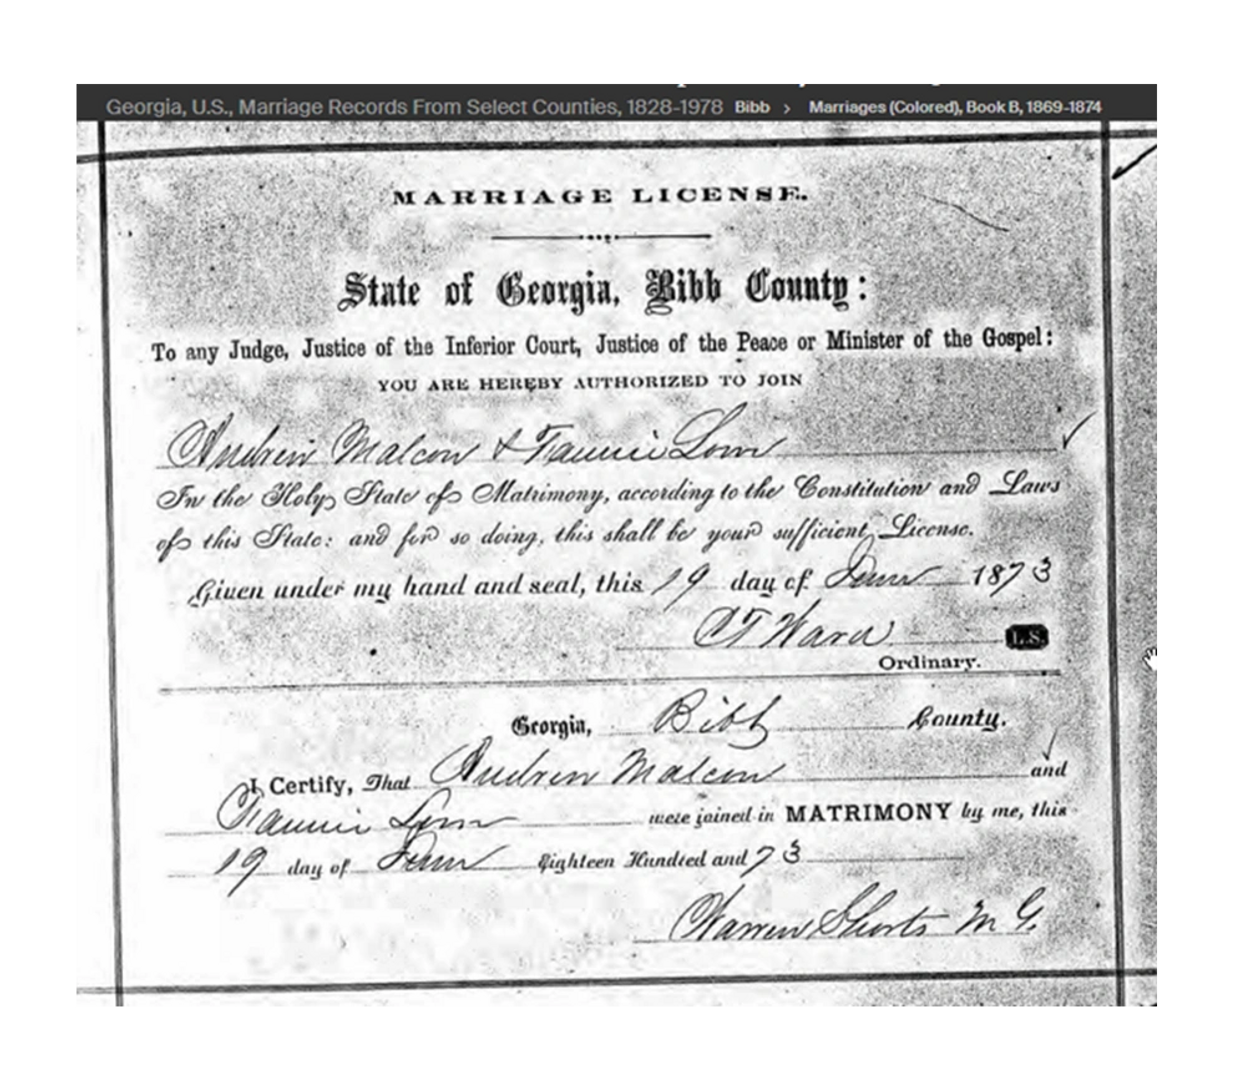 Georgia, U.S., Marriage Records From Select Counties, 1828-1978 Bibb > Marriages (Colored), Book B, 1869-1874
MARRIAGE LICENSE.
State of Georgia, Bibb County:
To any Judge, Justice of the Inferior Court, Justice of the Peace or Minister of the Gospel:
YOU ARE HEREBY AUTHORIZED TO JOIN
Andrew Malcom & Fannie
In the Holy State of Matrimony, according to the Constitution and Laws
of this State: and for so doing, this shall be your sufficient License.
Given under my hand and seal, this 19 day of June 1873
CT Ward L.S.
Ordinary.
Georgia, Bibb County.
I Certify, That Andrew Malcom and
Fannie were joined in MATRIMONY by me, this
19 day of June Eighteen Hundred and 73
Warren Shorts M G.